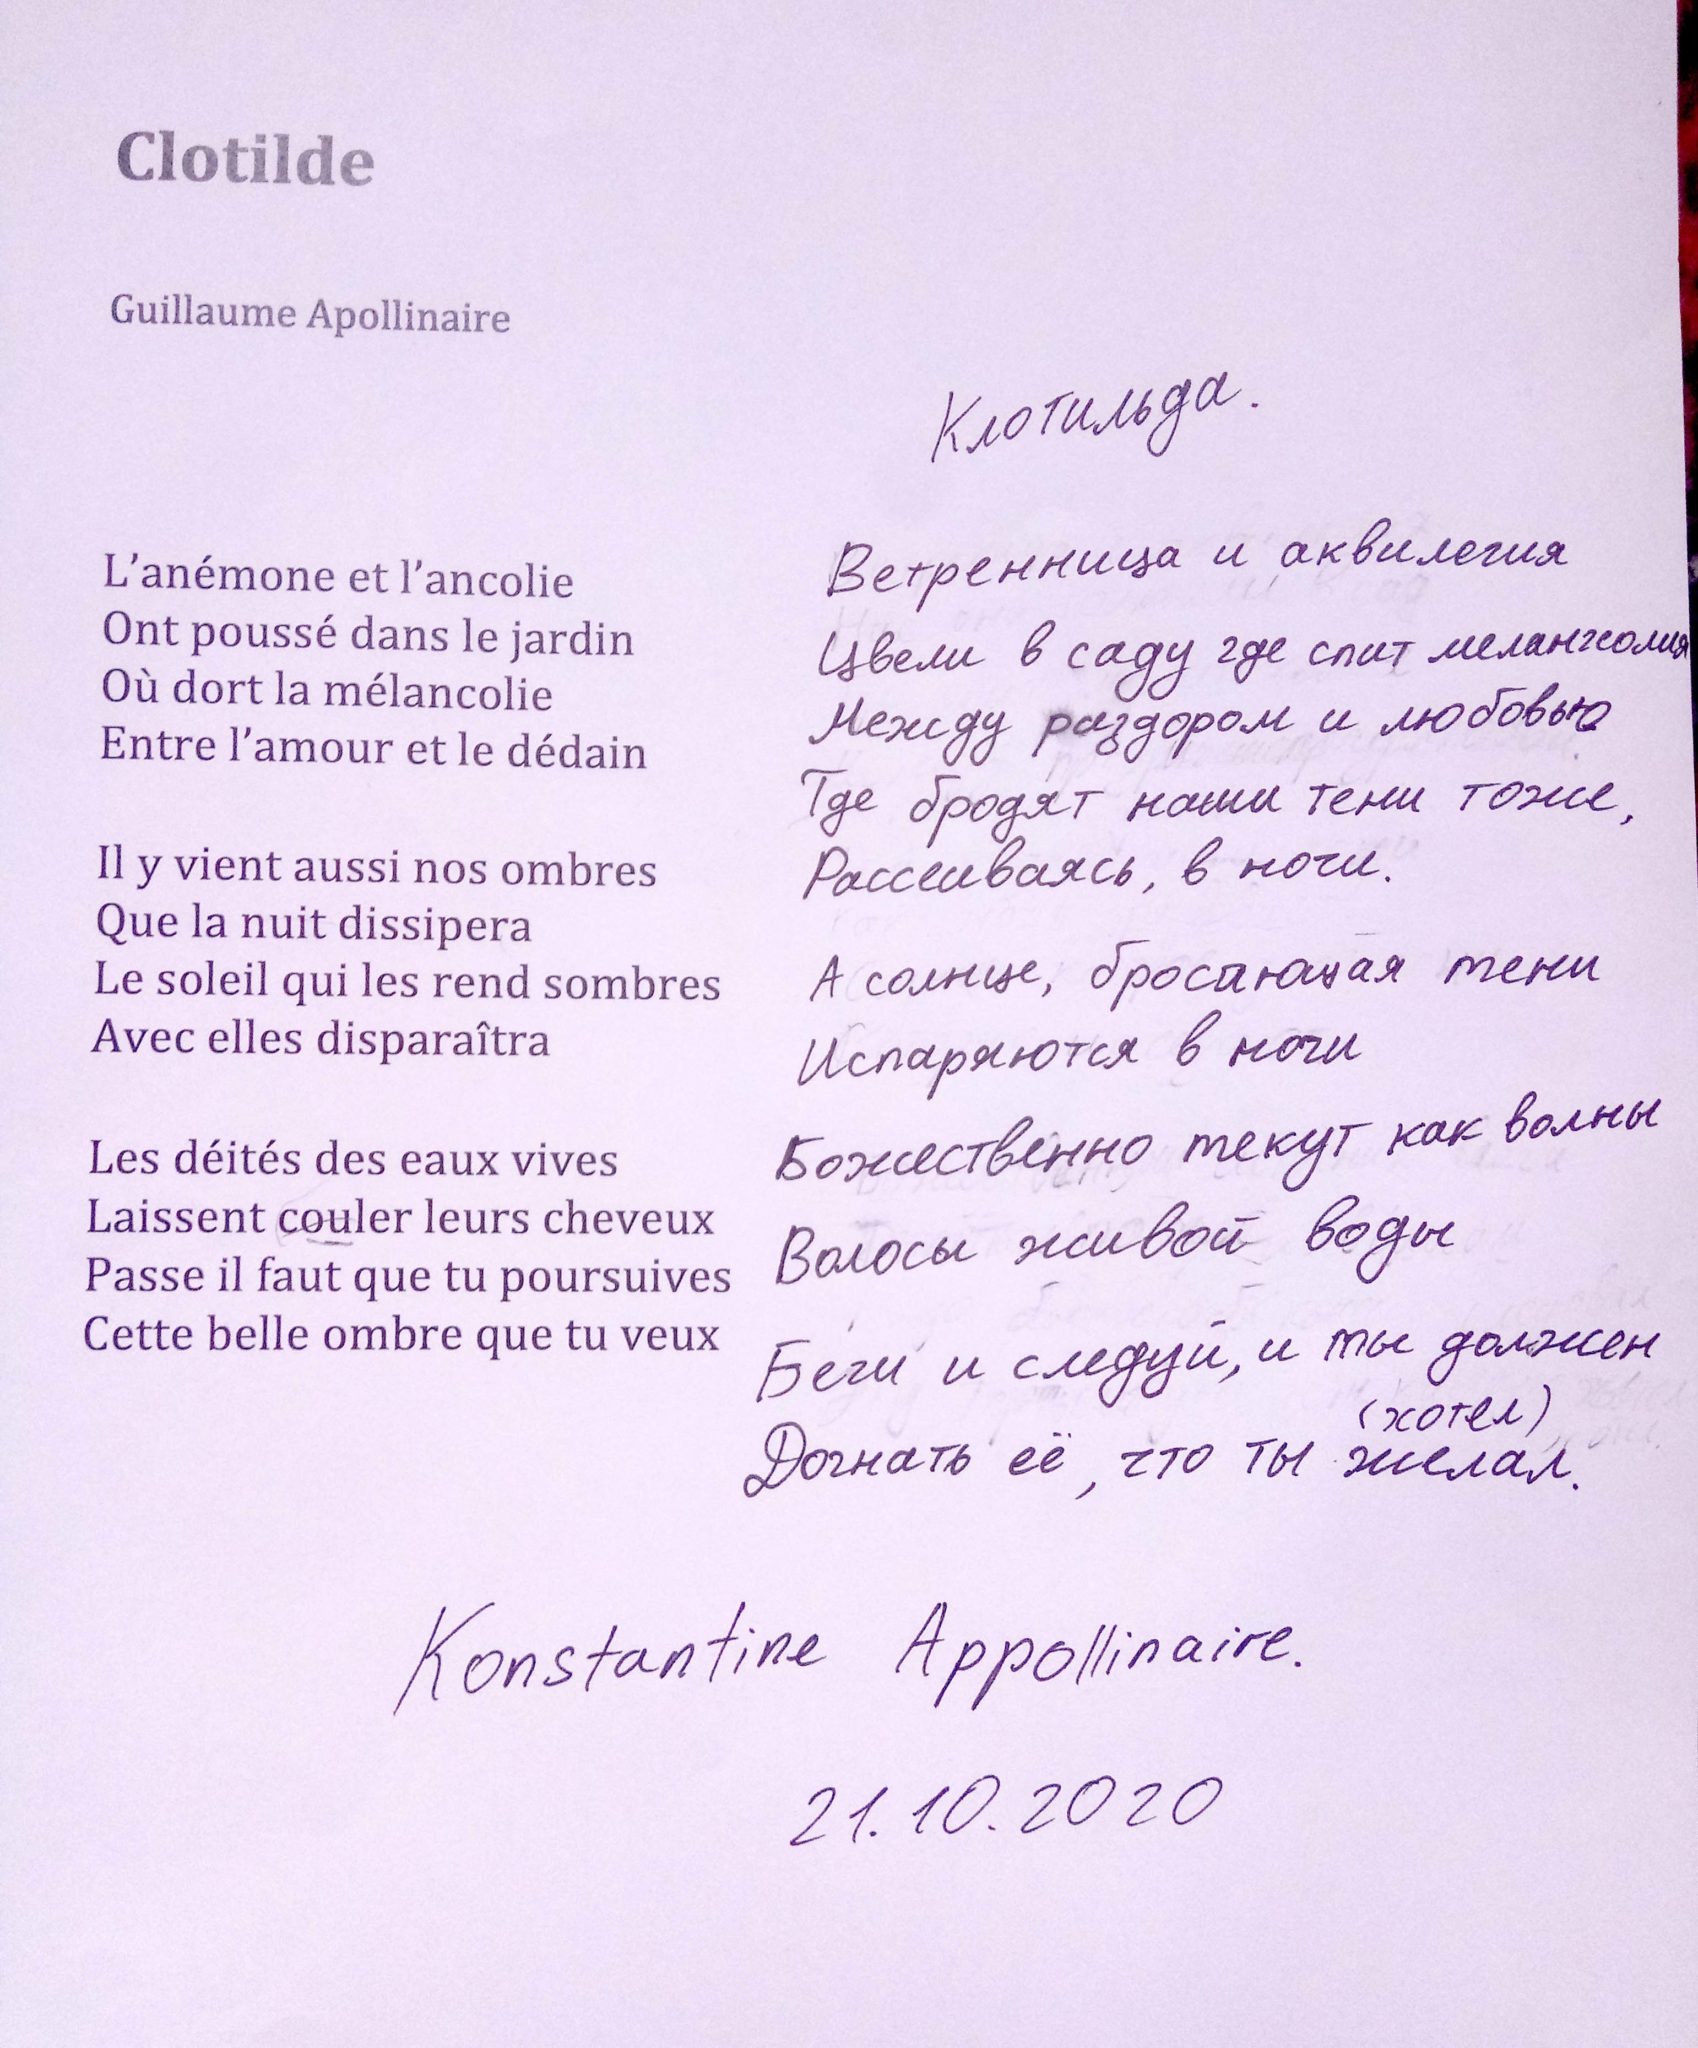 Clotilde
Guillaume Apollinaire
L'anémone et l'ancolie
Ont poussé dans le jardin
Où dort la mélancolie
Entre l'amour et le dédain
Il y vient aussi nos ombres
Que la nuit dissipera
Le soleil qui les rend sombres
Avec elles disparaîtra
Les déités des eaux vives
Laissent couler leurs cheveux
Passe il faut que tu poursuives
Cette belle ombre que tu veux
Клотильда.
Ветренница и аквилегия
Цвели в саду где спит меланхолия
Между раздором и любовью
Где бродят наши тени тоже,
Рассеиваясь, в ночи.
А солнце, бросающая тени
Испаряются в ночи
Божественно текут как волны
Волосы живой воды
Беги и следуй, и ты должен
(хотел)
Догнать её, что ты желал.
Konstantine Appollinaire.
21.10.2020